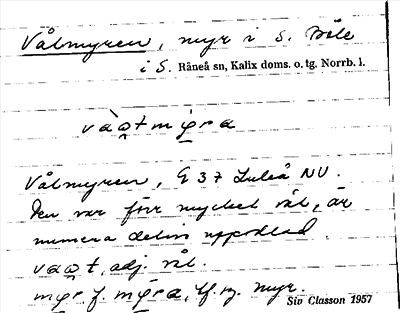 Vålmyren, myr i S. Böle
i S. Råneå sn, Kalix doms. o. tg. Norrb. l.
vàω̭tmý̨ra
Vålmyren, G 37 Luleå NV.
Den var förr mycket våt, är
numera delvis uppodlad.
vaω̭t, adj. våt.
my̨r f. my̨ra, bf. sg. myr.
Siv Classon 1957